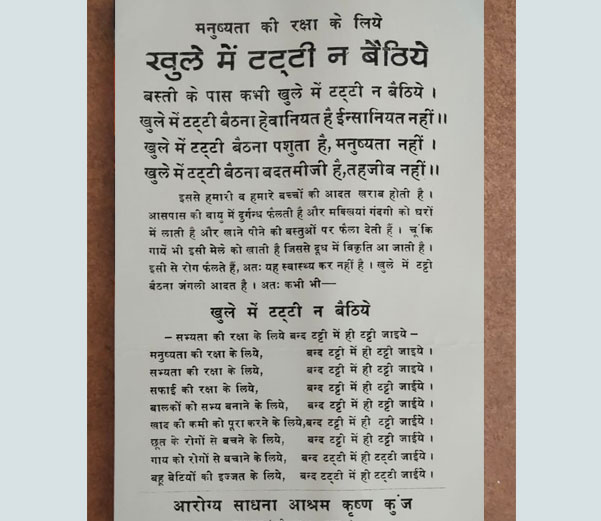 मनुष्यता की रक्षा के लिये
खुले में टट्टी न बैठिये
बस्ती के पास कभी खुले में टट्टी न बैठिये ।
खुले में टट्टी बैठना हेवानियत है ईन्सानियत नहीं।।
खुले में टट्टी बैठना पशुता है, मनुष्यता नहीं ।
खुले में टट्टी बैठना बदतमीजी है,तहजीब नहीं।।
इससे हमारी व हमारे बच्चों की आदत खराब होती है ।
आसपास की वायु में दुर्गन्ध फैलती है और मक्खियां गंदगी को घरों
में लाती है और खाने पीने की वस्तुओं पर फैला देती हैं । चूंकि
गायें भी इसी मैले को खाती है जिससे दूध में विकृति आ जाती है ।
इसी से रोग फैलते हैं, अतः यह स्वास्थ्य कर नहीं है । खुले में टट्टी
बैठना जंगली आदत है । अतः कभी भी—
खुले में टट्टी न बैठिये
– सभ्यता की रक्षा के लिये बन्द टट्टी में ही टट्टी जाइये –
मनुष्यता की रक्षा के लिये, बन्द टट्टी में ही टट्टी जाइये ।
सभ्यता की रक्षा के लिये, बन्द टट्टी में ही टट्टी जाइये ।
सफाई की रक्षा के लिये, बन्द टट्टी में ही टट्टी जाईये ।
बालकों को सभ्य बनाने के लिये, बन्द टट्टी में ही टट्टी जाईये ।
खाद की कमी को पूरा करने के लिये,बन्द टट्टी में ही टट्टी जाईये ।
छूत के रोगों से बचने के लिये, बन्द टट्टी में ही टट्टी जाईये ।
गाय को रोगों से बचाने के लिये, बन्द टट्टी में ही टट्टी जाईये ।
बहू बेटियों की इज्जत के लिये, बन्द टट्टी में ही टट्टी जाईये ।
आरोग्य साधना आश्रम कृष्ण कुंज